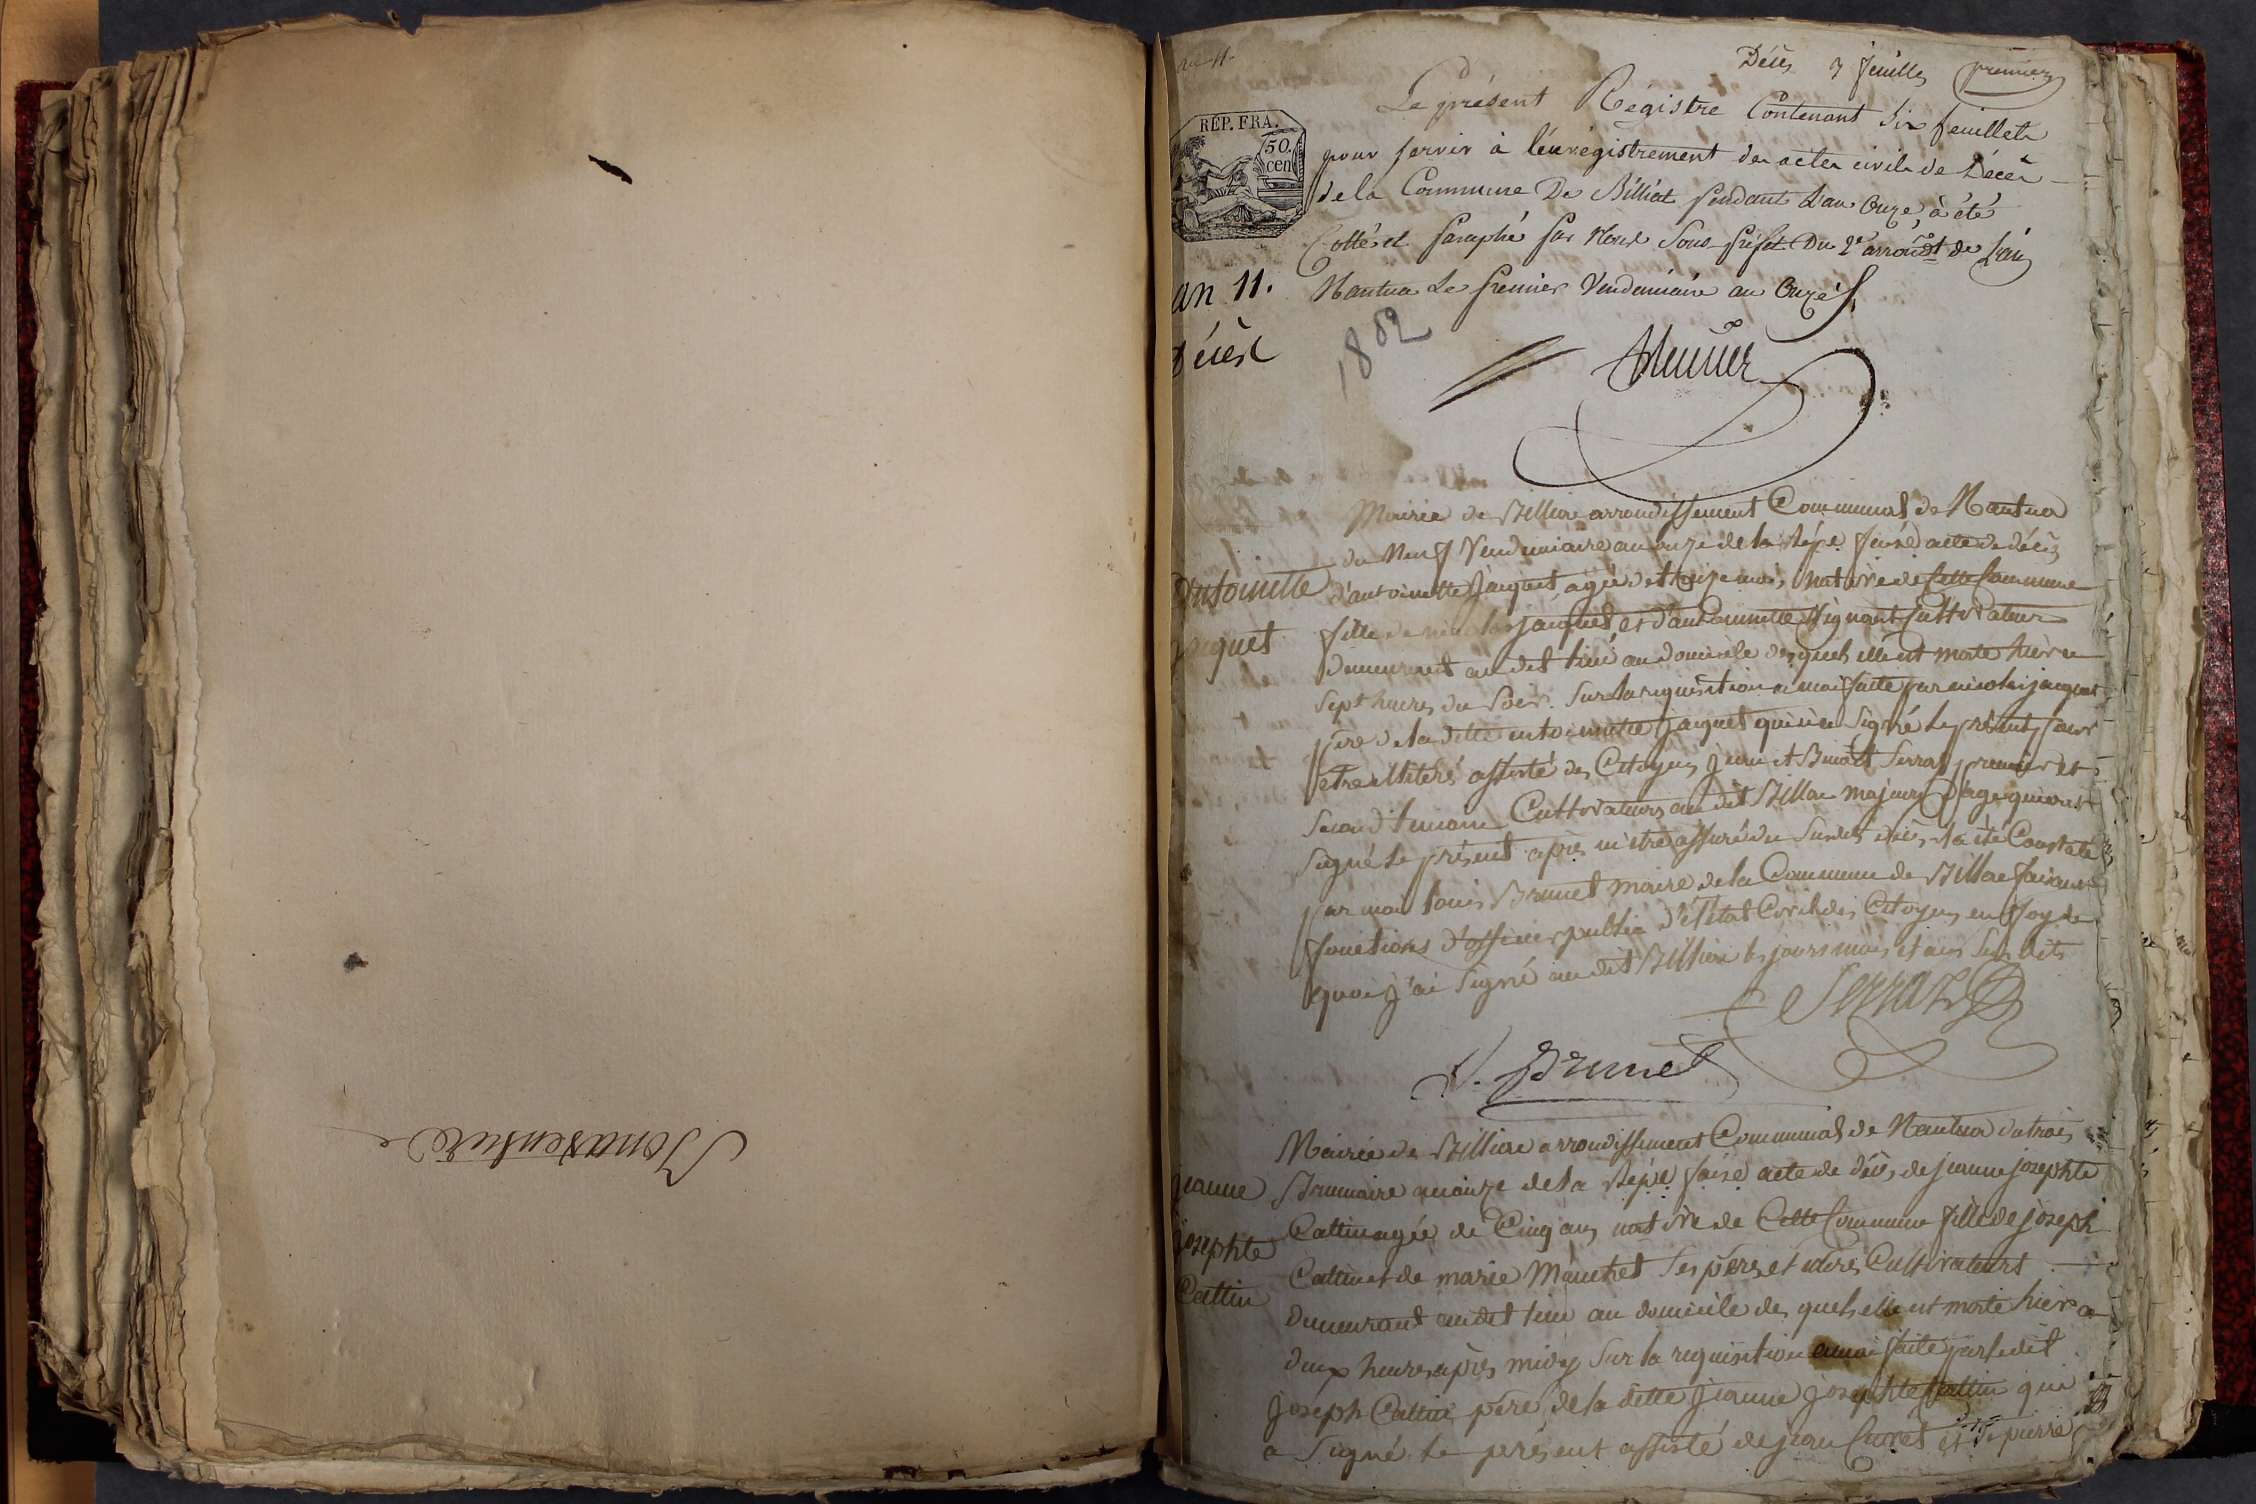 Bonaventure
an 11
Décès 3 feuilles premier
Le présent Régistre Contenant Six feuillets
pour servir à l'enrégistrement des actes civils de Décès
de la Commune De Billiat pendant L'an Onze, à été
Cotté et paraphé par Nous Sous-préfet Du 2e arrondt de L'ain
Nantua Le premier Vendemiaire an Onze
REP. FRA.
50.
cen
an 11.
Décès
1802
Mairie de Billiat arrondissement Communal de Nantua
du Neuf Vendemiaire an onze de la Répe. fsaise acte de décès
d'antoinette Jacquet, agée de mois, native de Cette Commune
fille de nicolas jacquet et d'antoinette Cultivateurs
demeurant au dit lieu au domicile desquels elle est morte hièr a
Sept heures du Soir. Sur la requisition a moi faite par nicolas jacquet
père de la ditte antoinette jacquet qui a Signé le présent pour
être assisté des Citoyens jean et Benoit Serraz premier et
Second temoins Cultivateurs au dit Billiat majeurs d'age qui ont
Signé le présent après m'être assuré du Susdit décès il a été Constaté
par moi louis Brunet maire de la Commune de Billiat faisant
fonctions d'officier public d'état Civil des Citoyens en foy de
quoi j'ai Signé au dit Billiat les jours mois et an Sus dits
Antoinette
jacquet
Serraz
Brunet
Mairie de Billiat arrondissement Communal de Nantua du trois
Brumaire an onze de la Répe. fsaise acte de décès de jeanne josephte
Cattin agée de Cinq ans native de Cette Commune fille de joseph
Cattin et de marie Ses père et mère Cultivateurs
demeurant au dit lieu au domicile des quels elle est morte hièr a
deux heures après midy Sur la requisition a moi faite par le dit
joseph Cattin père de la ditte jeanne josephte Cattin qui
a Signé le présent assisté de jean et de pierre
jeanne
josephte
Cattin